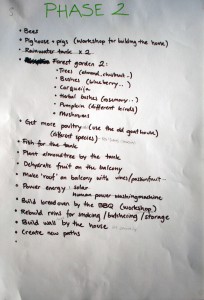 PHASE 2
• Bees
• Pighouse + pigs (workshop for building the house)
• Rainwater tank x 2
• Forest garden 2:
• Trees (almond, chestnut..)
• Bushes (wineberry...)
• Carqueija
• Herbal bushes (rosemary...)
• Pumpkin (different kinds)
• Mushrooms
• Get more poultry (use the old goathouse)
(different species)
• Fish for the tank
• Plant almondtree by the tank
• Dehydrate fruit on the balcony
• Make 'roof' on balcony with vines/passionfruit
• Power energy: solar
human power washingmachine
• Build breadoven by the BBQ (workshop)
• Rebuild ruins for smoking/butchering/storage
• Build wall by the house
• Create new paths
•